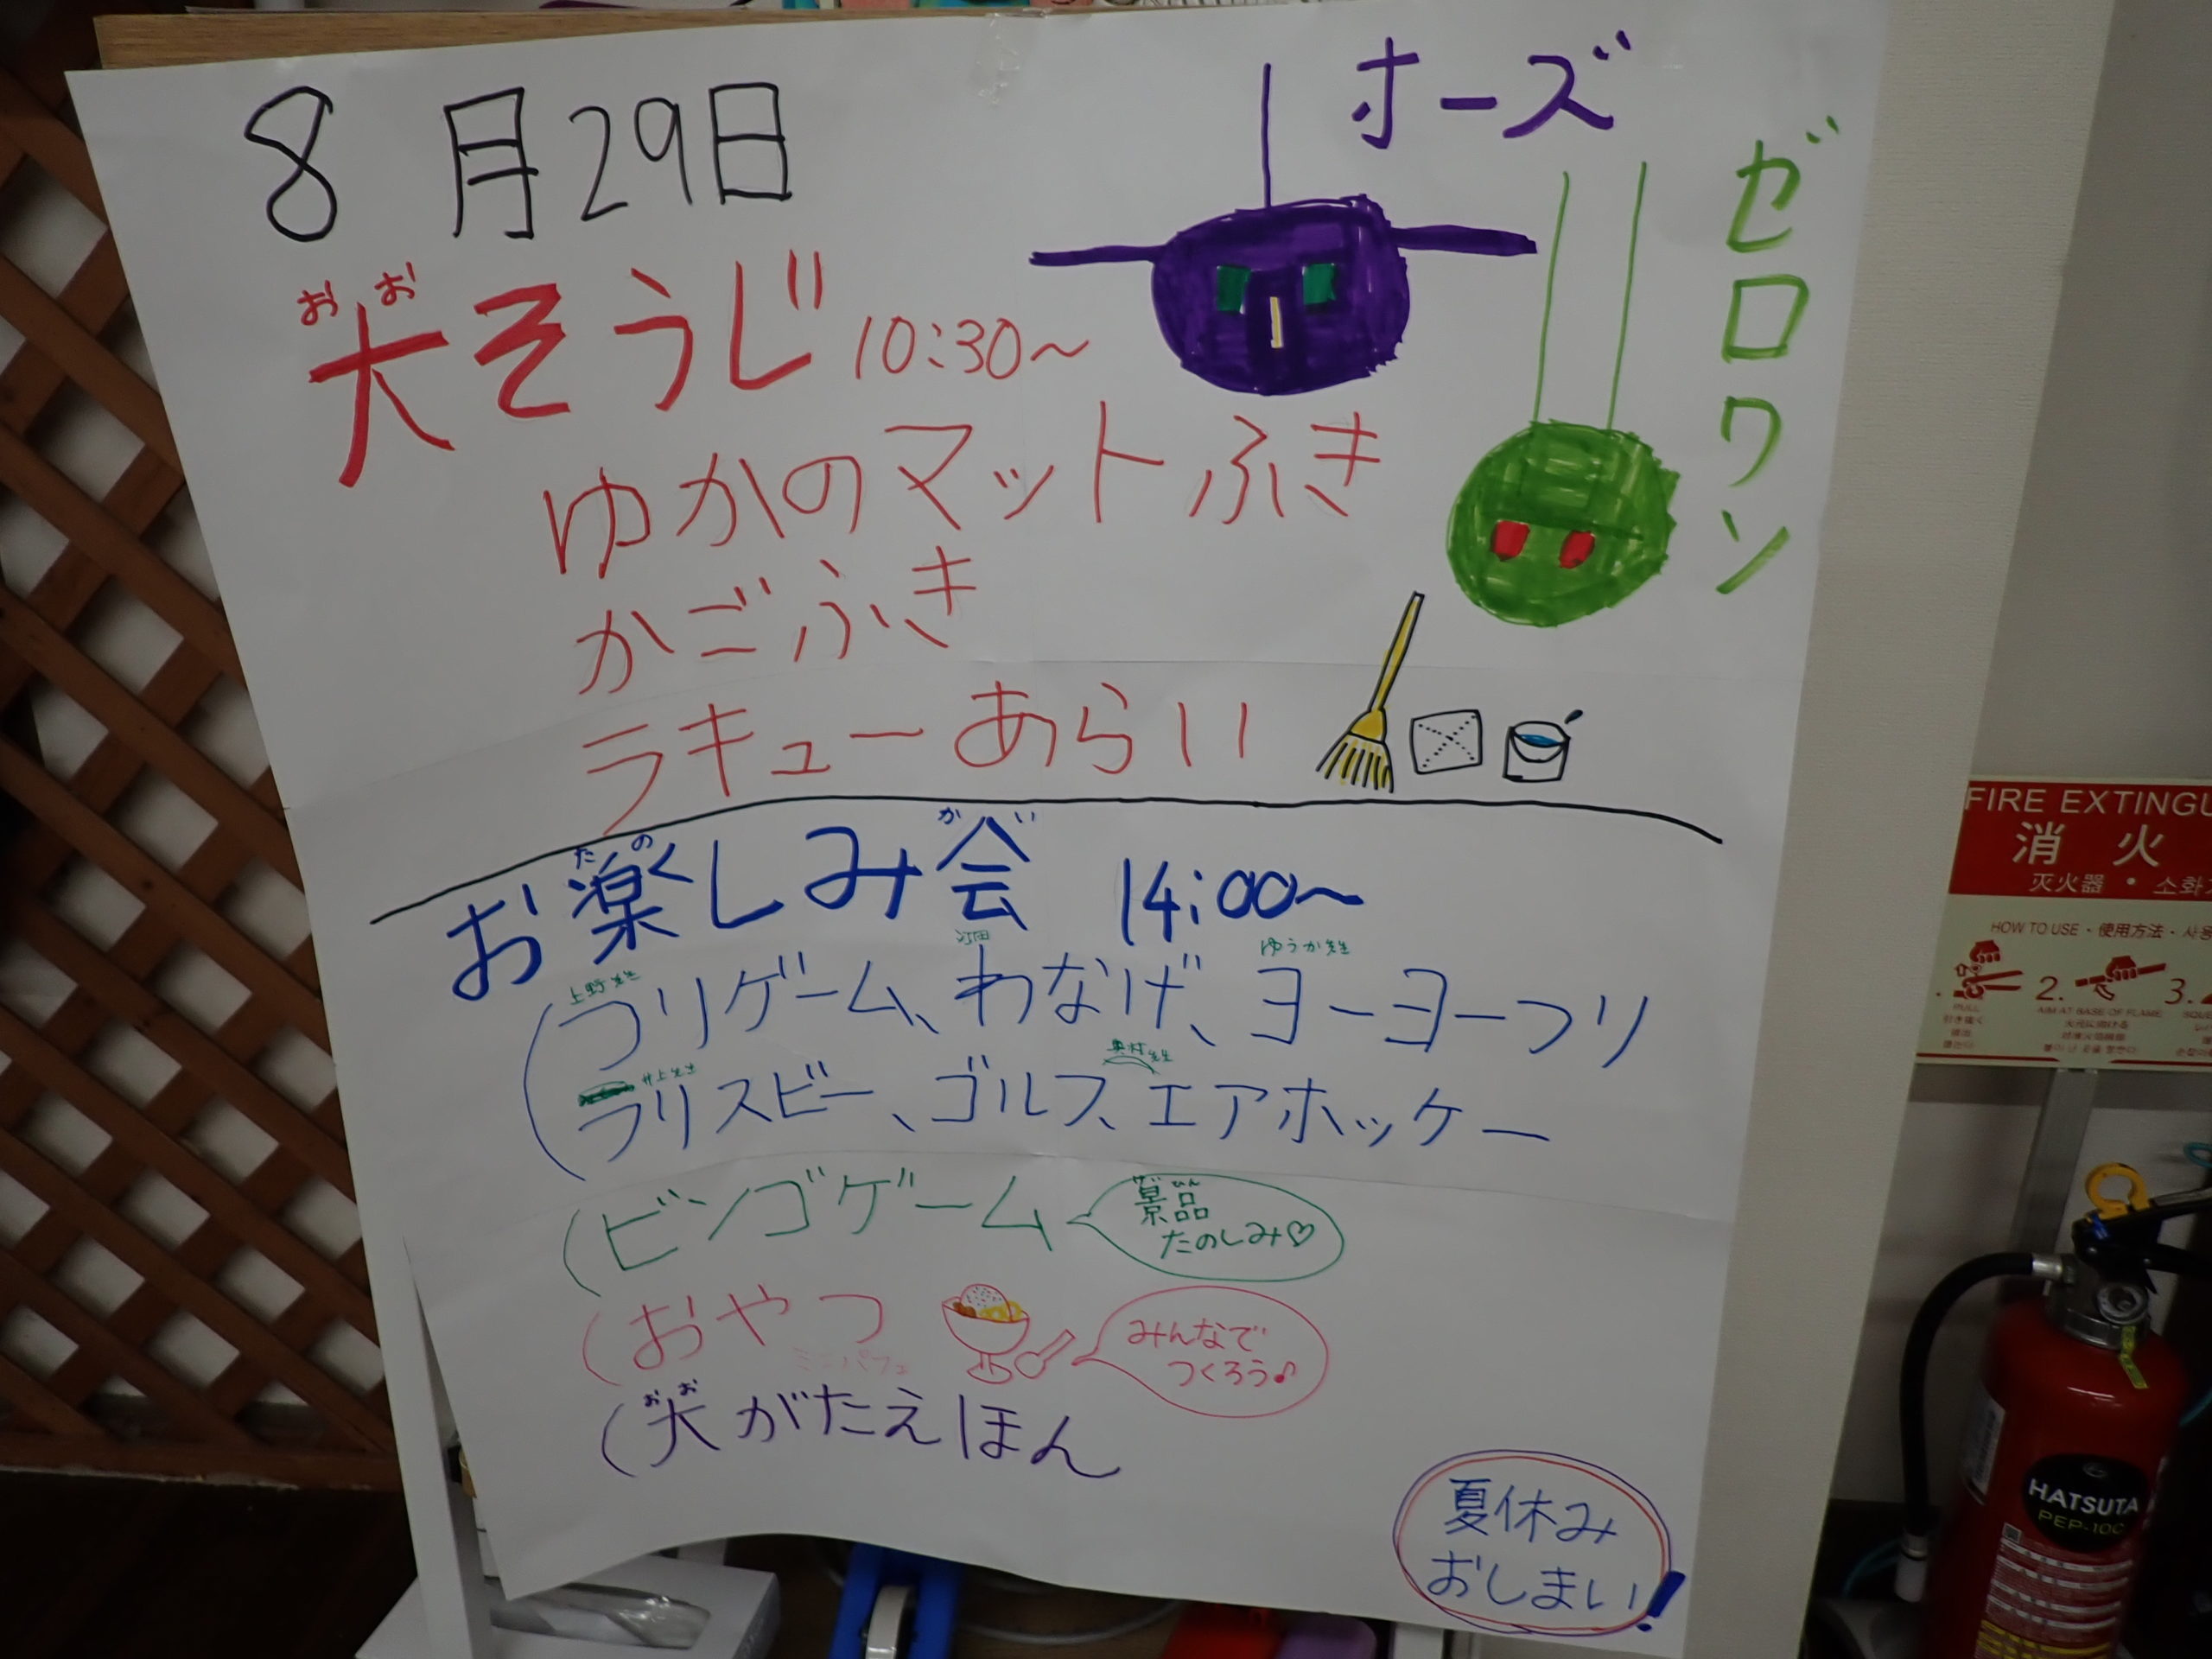 8月29日
オーズ
ゼロワン
おお
大そうじ 10:30〜
ゆかのマットふき
かごふき
ラキューあらい
たの かい
お楽しみ会 14:00〜
上野先生 ゆうか先生
(つりゲーム、わなげ、ヨーヨーつり
井上先生 奥村先生
フリスビー、ゴルフ、エアホッケー
(ビンゴゲーム
景品
たのしみ♡
(おやつ
ミニパフェ
みんなで
つくろう♪
おお
(大がたえほん
夏休み
おしまい!
FIRE EXTINGU
消火
灭火器・소화기
HOW TO USE・使用方法・사용
2.
3.
AIM AT BASE OF FLAME
HATSUTA
PEP-10C